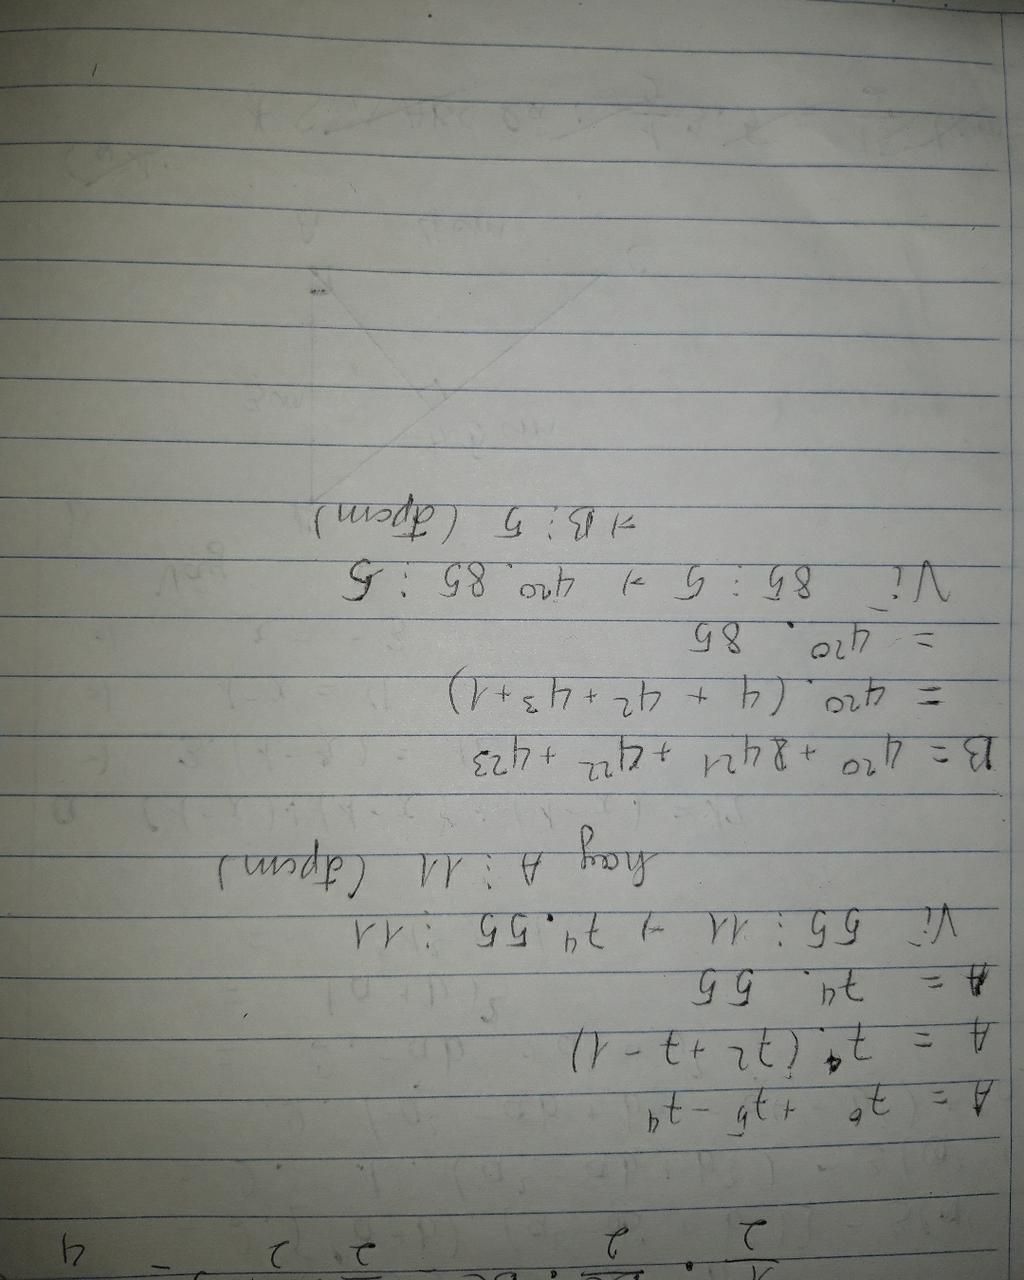 A = 7⁶ + 7⁵ - 7⁴
A = 7⁴. (7² + 7 - 1)
A = 7⁴. 55
Vì 55 ⋮ 11 → 7⁴. 55 ⋮ 11
hay A ⋮ 11 (đpcm)
B = 4²⁰ + 4²¹ + 4²² + 4²³
= 4²⁰. (4 + 4² + 4³ + 1)
= 4²⁰. 85
Vì 85 ⋮ 5 → 4²⁰. 85 ⋮ 5
→ B ⋮ 5 (đpcm)